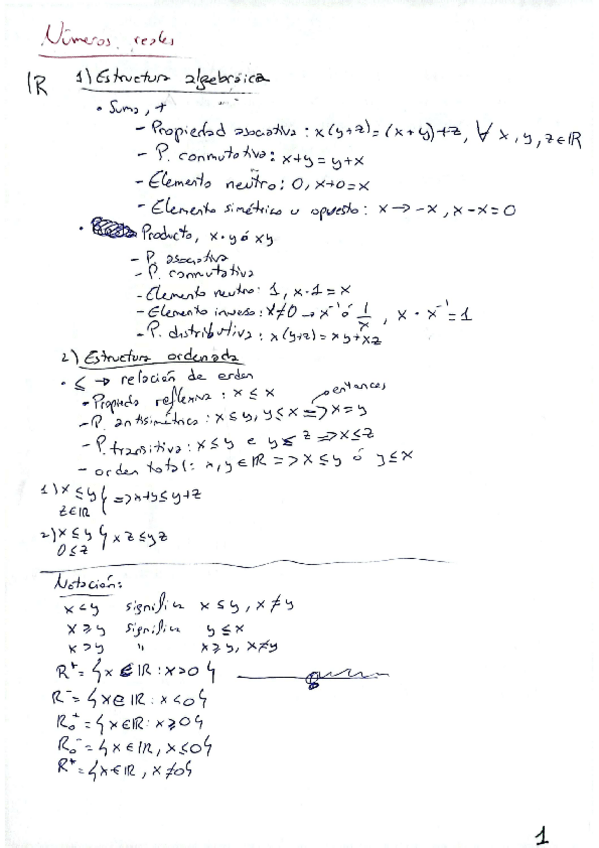 Números reales
ℝ 1) Estructura algebráica
• Suma, +
- Propiedad asociativa: x(y+z)=(x+y)+z, ∀ x, y, z ∈ ℝ
- P. conmutativa: x+y=y+x
- Elemento neutro: 0, x+0=x
- Elemento simétrico u opuesto: x → -x, x-x=0
• Producto, x·y ó xy
- P. asociativa
- P. conmutativa
- Elemento neutro: 1, x·1=x
- Elemento inverso: x≠0 → x⁻¹ ó 1/x, x·x⁻¹=1
- P. distributiva: x(y+z)=xy+xz
2) Estructura ordenada
• ≤ → relación de orden
- Propieda reflexiva: x ≤ x
→ entonces
- P. antisimétrica: x≤y, y≤x => x=y
- P. transitiva: x≤y e y≤z => x≤z
- orden total: x,y∈ℝ => x≤y ó y≤x
1) x≤y z∈ℝ } => x+y≤y+z
2) x≤y 0≤z } xz≤yz
Notación:
x<y significa x≤y, x≠y
x≥y significa y≤x
x>y " x≥y, x≠y
R⁺={x∈ℝ: x>0}
R⁻={x∈ℝ: x<0}
R₀⁺={x∈ℝ: x≥0}
R₀⁻={x∈ℝ, x≤0}
R*={x∈ℝ, x≠0}
1